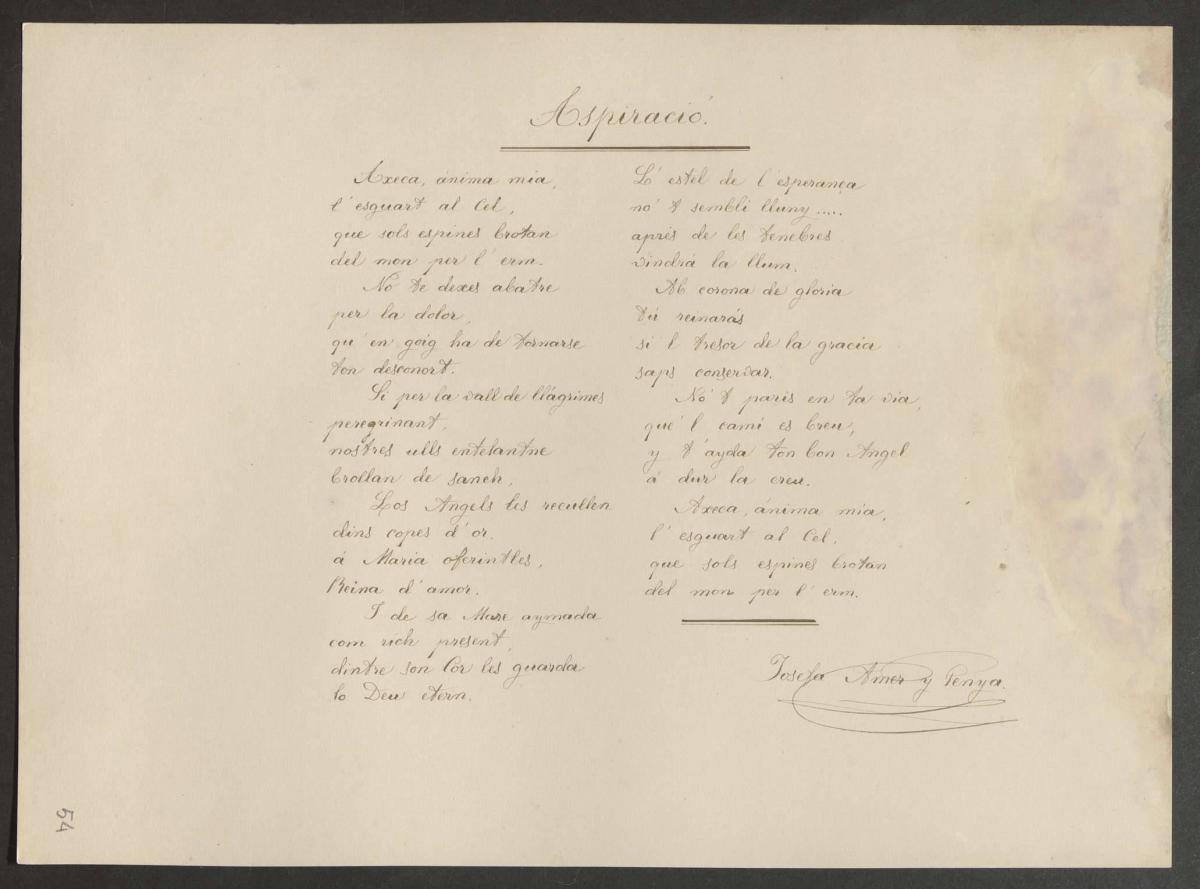 Aspiració.
Axeca, ánima mia,
l' esguart al Cel,
que sols espines brotan
del mon per l' erm.
No te dexes abatre
per la dolor,
qu' en goig ha de tornarse
ton desconort.
Si per la vall de llágrimes
peregrinant,
nostres ulls entelantne
brollan de sanch,
Los Angels les recullen
dins copes d' or,
á Maria oferintles,
Reina d' amor.
I de sa Mare aymada
com rich present,
dintre son Cor les guarda
lo Deu etern.
L' estel de l' esperança
no' t sembli lluny.....
aprés de les tenebres
vindrá la llum.
Ab corona de gloria
tú reinarás
si l tresor de la gracia
saps conservar.
No' t paris en ta via,
que' l camí es breu,
y t' ayda ton bon Angel
á dur la creu.
Axeca, ánima mia,
l' esguart al Cel,
que sols espines brotan
del mon per l' erm.
Josefa Amer y Penya.
54